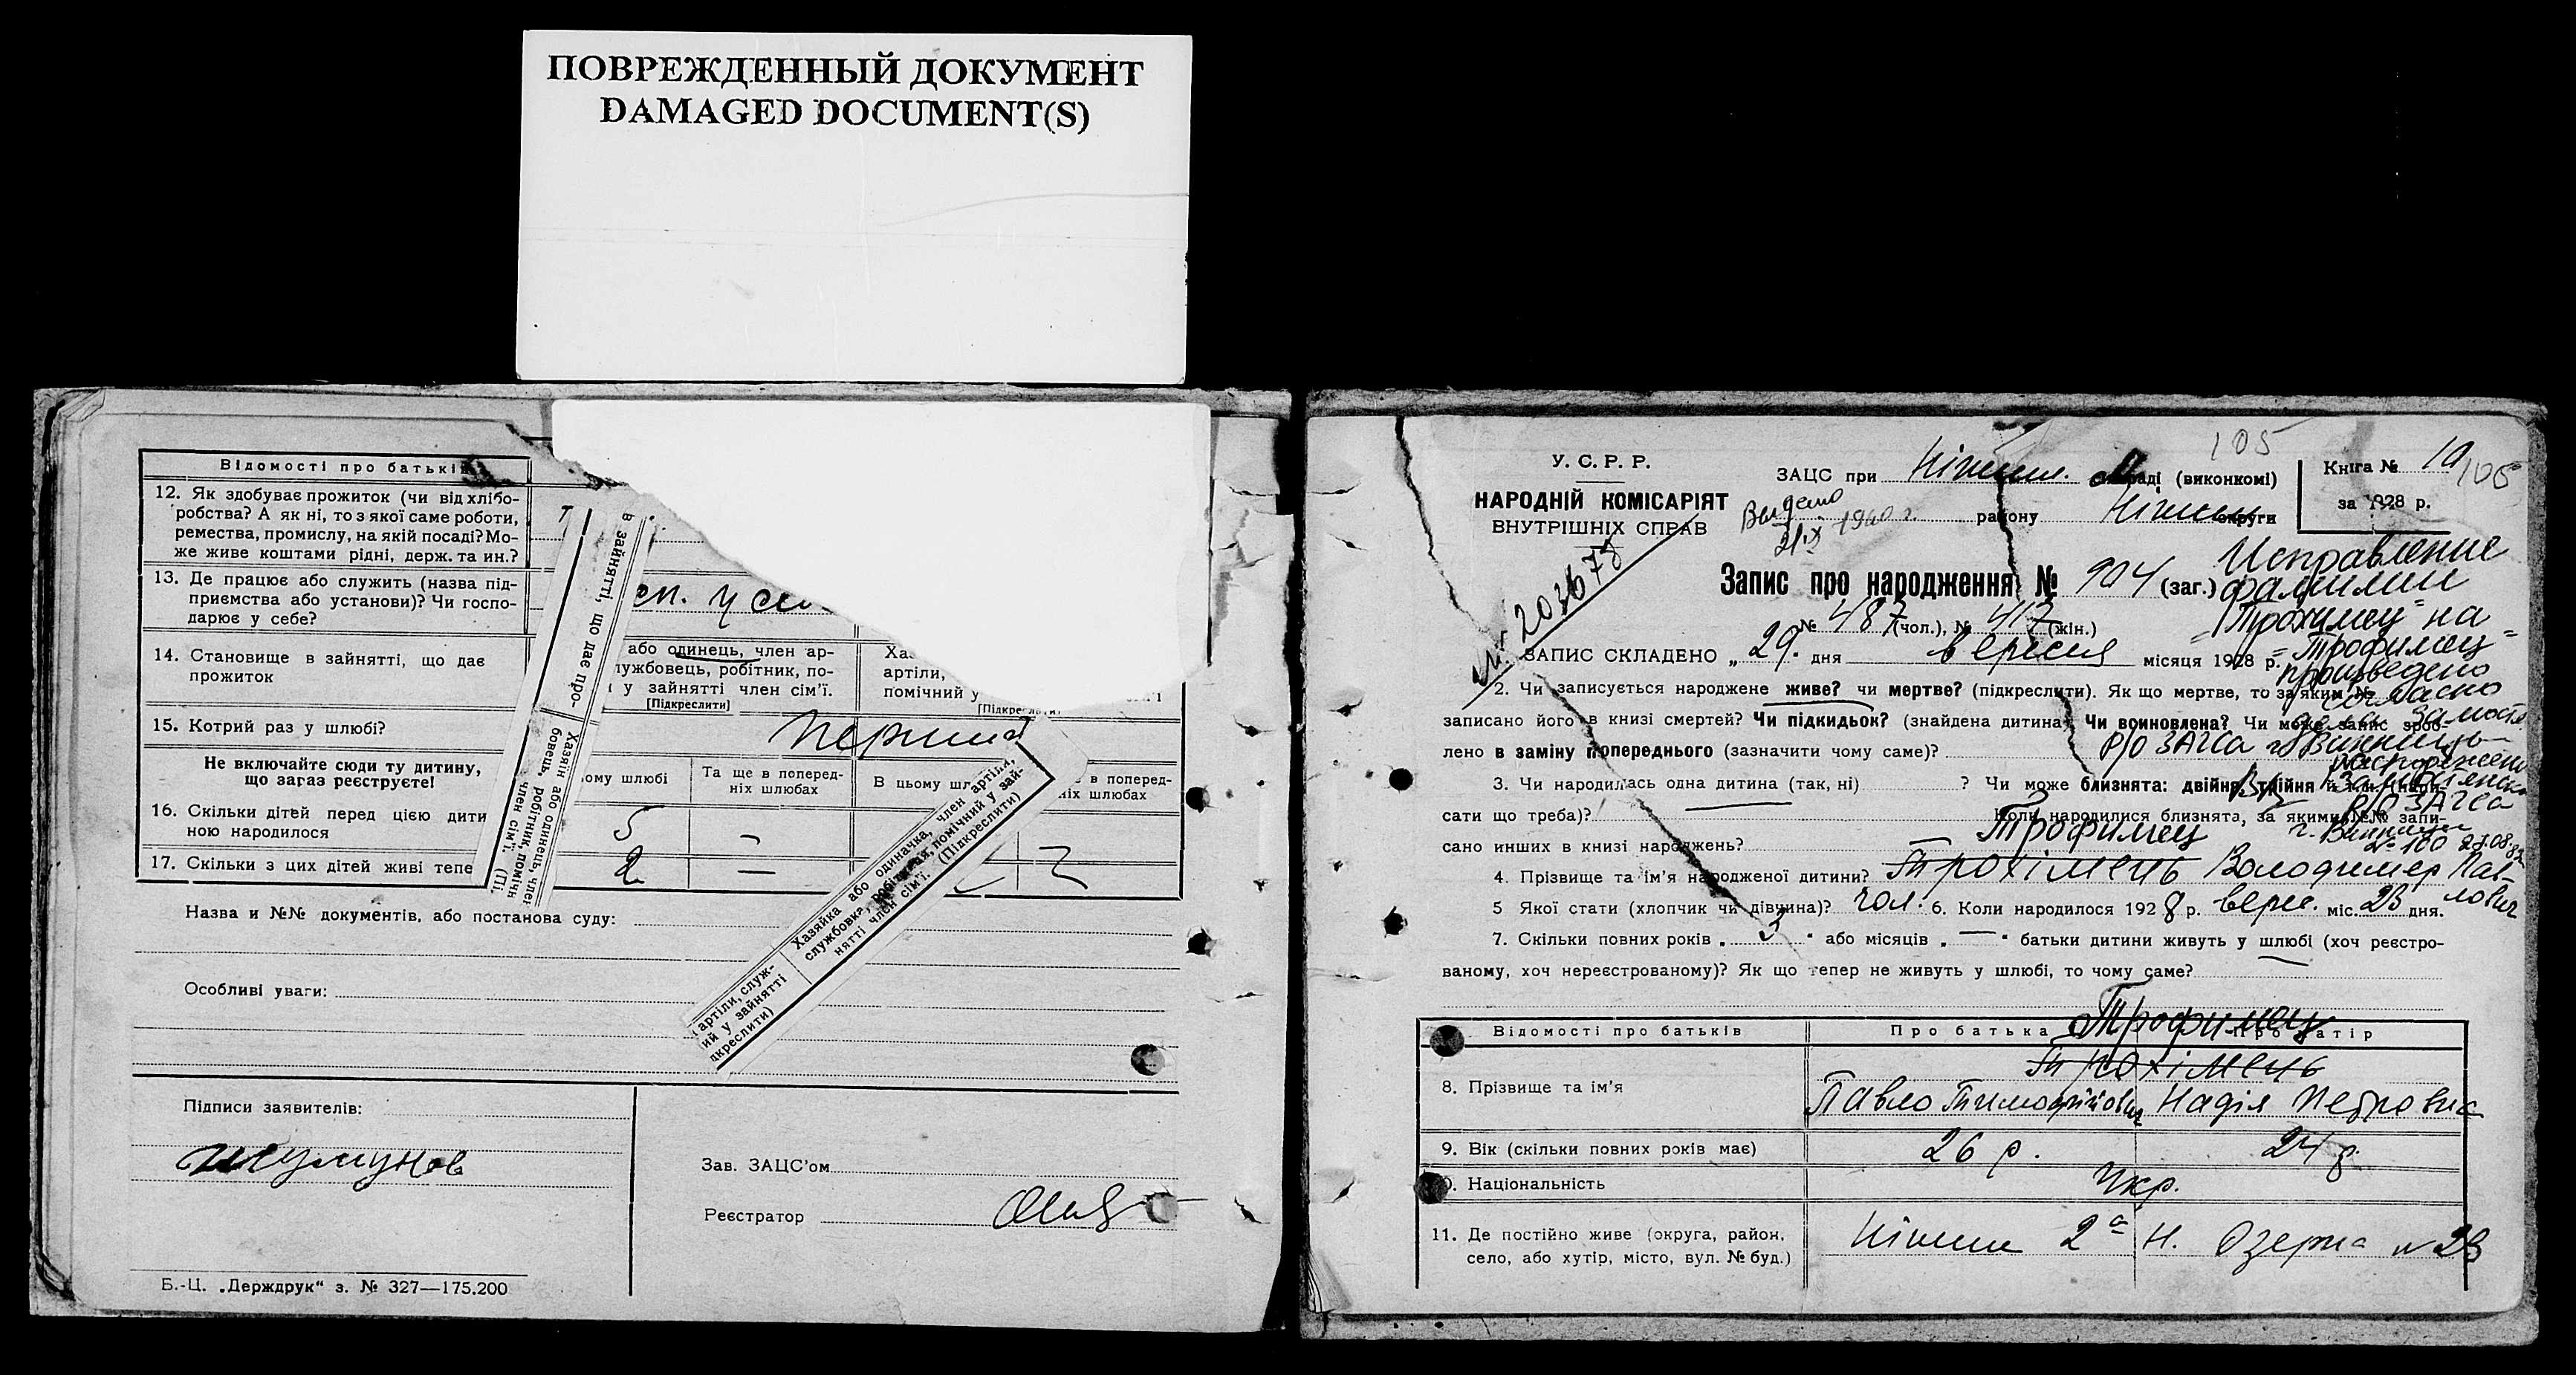 ПОВРЕЖДЕННЫЙ ДОКУМЕНТ
DAMAGED DOCUMENT(S)
Відомості про батькі
12. Як здобуває прожиток (чи від хлібо-
робства? А як ні, то з якої саме роботи,
ремества, промислу, на якій посаді? Мо-
же живе коштами рідні, держ. та ин.?
13. Де працює або служить (назва під-
приємства або установи)? Чи госпо-
дарює у себе?
14. Становище в зайнятті, що дає
прожиток
або одинець, член ар-
лужбовець, робітник, по-
у зайнятті член сім'ї.
[Підкреслити]
Ха
артіли,
помічний у
[Підкреслити]
в зайнятті, що дає про-
Хазяїн або одинець, член
бовець, робітник, помічн
член сім'ї. (Пі
15. Котрий раз у шлюбі?
перший
Не включайте сюди ту дитину,
що загаз реєструєте!
ому шлюбі
Та ще в поперед-
ніх шлюбах
В цьому шл
е в поперед-
ніх шлюбах
16. Скільки дітей перед цією дити
ною народилося
5 —
17. Скільки з цих дітей живі тепе
2 —
Хазяйка або одиначка, член артіли,
службовка, робітниця, помічний у зай-
нятті член сім'ї. (Підкреслити)
артіли, служ-
ий у зайнятті
дкреслити)
Назва и №№ документів, або постанова суду:
Особливі уваги:
Підписи заявителів:
Зав. ЗАЦС'ом
Реєстратор
Б.-Ц. „Держдрук" з. № 327—175.200
105
У. С. Р. Р.
НАРОДНІЙ КОМІСАРІЯТ
ВНУТРІШНІХ СПРАВ
ЗАЦС при Ніжин. раді (виконкомі)
району Ніжин округи
Книга № 10
за 1928 р.
105
Выдано
1940 г.
№ 203678
Запис про народження № 904 (заг.)
№ 487 (чол.), № 417 (жін.)
Исправление
фамилии
"Трохимец" на
"Трофимец"
произведено
согласно
р/о ЗАГСа г. Винницы
р/о ЗАГСа
г. Винницы
№ 160 27.08.82
ЗАПИС СКЛАДЕНО „29. дня вересня місяця 1928 р.
2. Чи записується народжене живе? чи мертве? (підкреслити). Як що мертве, то за яким №
записано його в книзі смертей? Чи підкидьок? (знайдена дитина) Чи всиновлена? Чи може запис зроб-
лено в заміну попереднього (зазначити чому саме)?
3. Чи народилась одна дитина (так, ні) ? Чи може близнята: двійня, трійня и т. и. (напи-
сати що треба)? Коли народилися близнята, за якими №№ запи-
сано инших в книзі народжень?
Трофимец
4. Прізвище та ім'я народженої дитини? Трохімець Володимер Пав-
лович
5 Якої стати (хлопчик чи дівчина)? чол. 6. Коли народилося 1928 р. верес. міс. 23 дня.
7. Скільки повних років „ 3 " або місяців „ — " батьки дитини живуть у шлюбі (хоч реєстро-
ваному, хоч нереєстрованому)? Як що тепер не живуть у шлюбі, то чому саме?
Відомості про батьків
Про батька
Про матір
Трофимец
Трохімець
8. Прізвище та ім'я
Павло Тимофійович Надія Петровна
9. Вік (скільки повних років має) 26 р. 24 р.
10. Національність Укр.
11. Де постійно живе (округа, район,
село, або хутір, місто, вул. № буд.)
Ніжин 2а Н. Озерна № 23